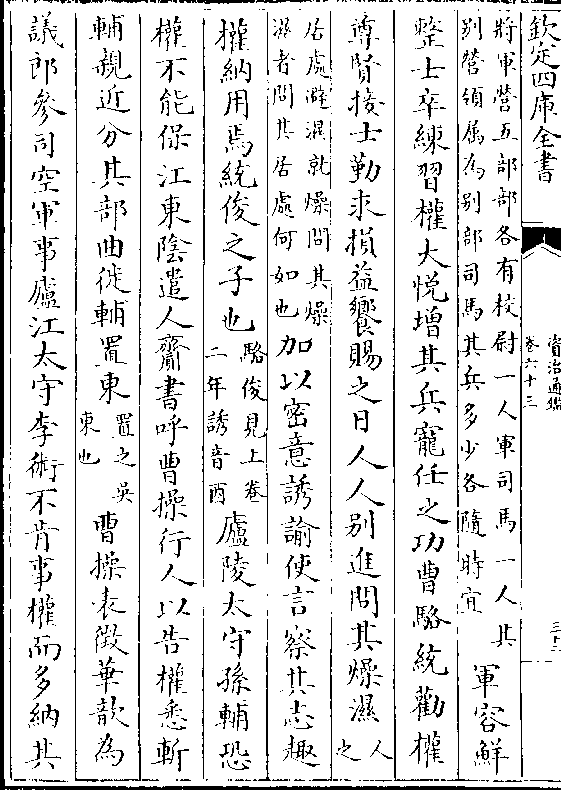 欽定四庫全書
資治通鑑
卷六十三
將軍營五部部各有校尉一人軍司馬一人其
別營領属為别部司馬其兵多少各隨時宜
軍容鮮
整士卒練習權大悦增其兵寵任之功曹駱統勸權
尊賢接士勤求損益饗賜之日人人别進問其燥濕
人之
居處避濕就燥問其燥
濕者問其居處何如也
加以密意誘諭使言察其志趣
權納用焉統俊之子也
駱俊見上卷
二年誘音酉
廬陵太守孫輔恐
權不能保江東陰遣人齎書呼曹操行人以告權悉斬
輔親近分其部曲徙輔置東
置之吳
東也
曹操表徵華歆為
議郎參司空軍事廬江太守李術不肯事權而多納其